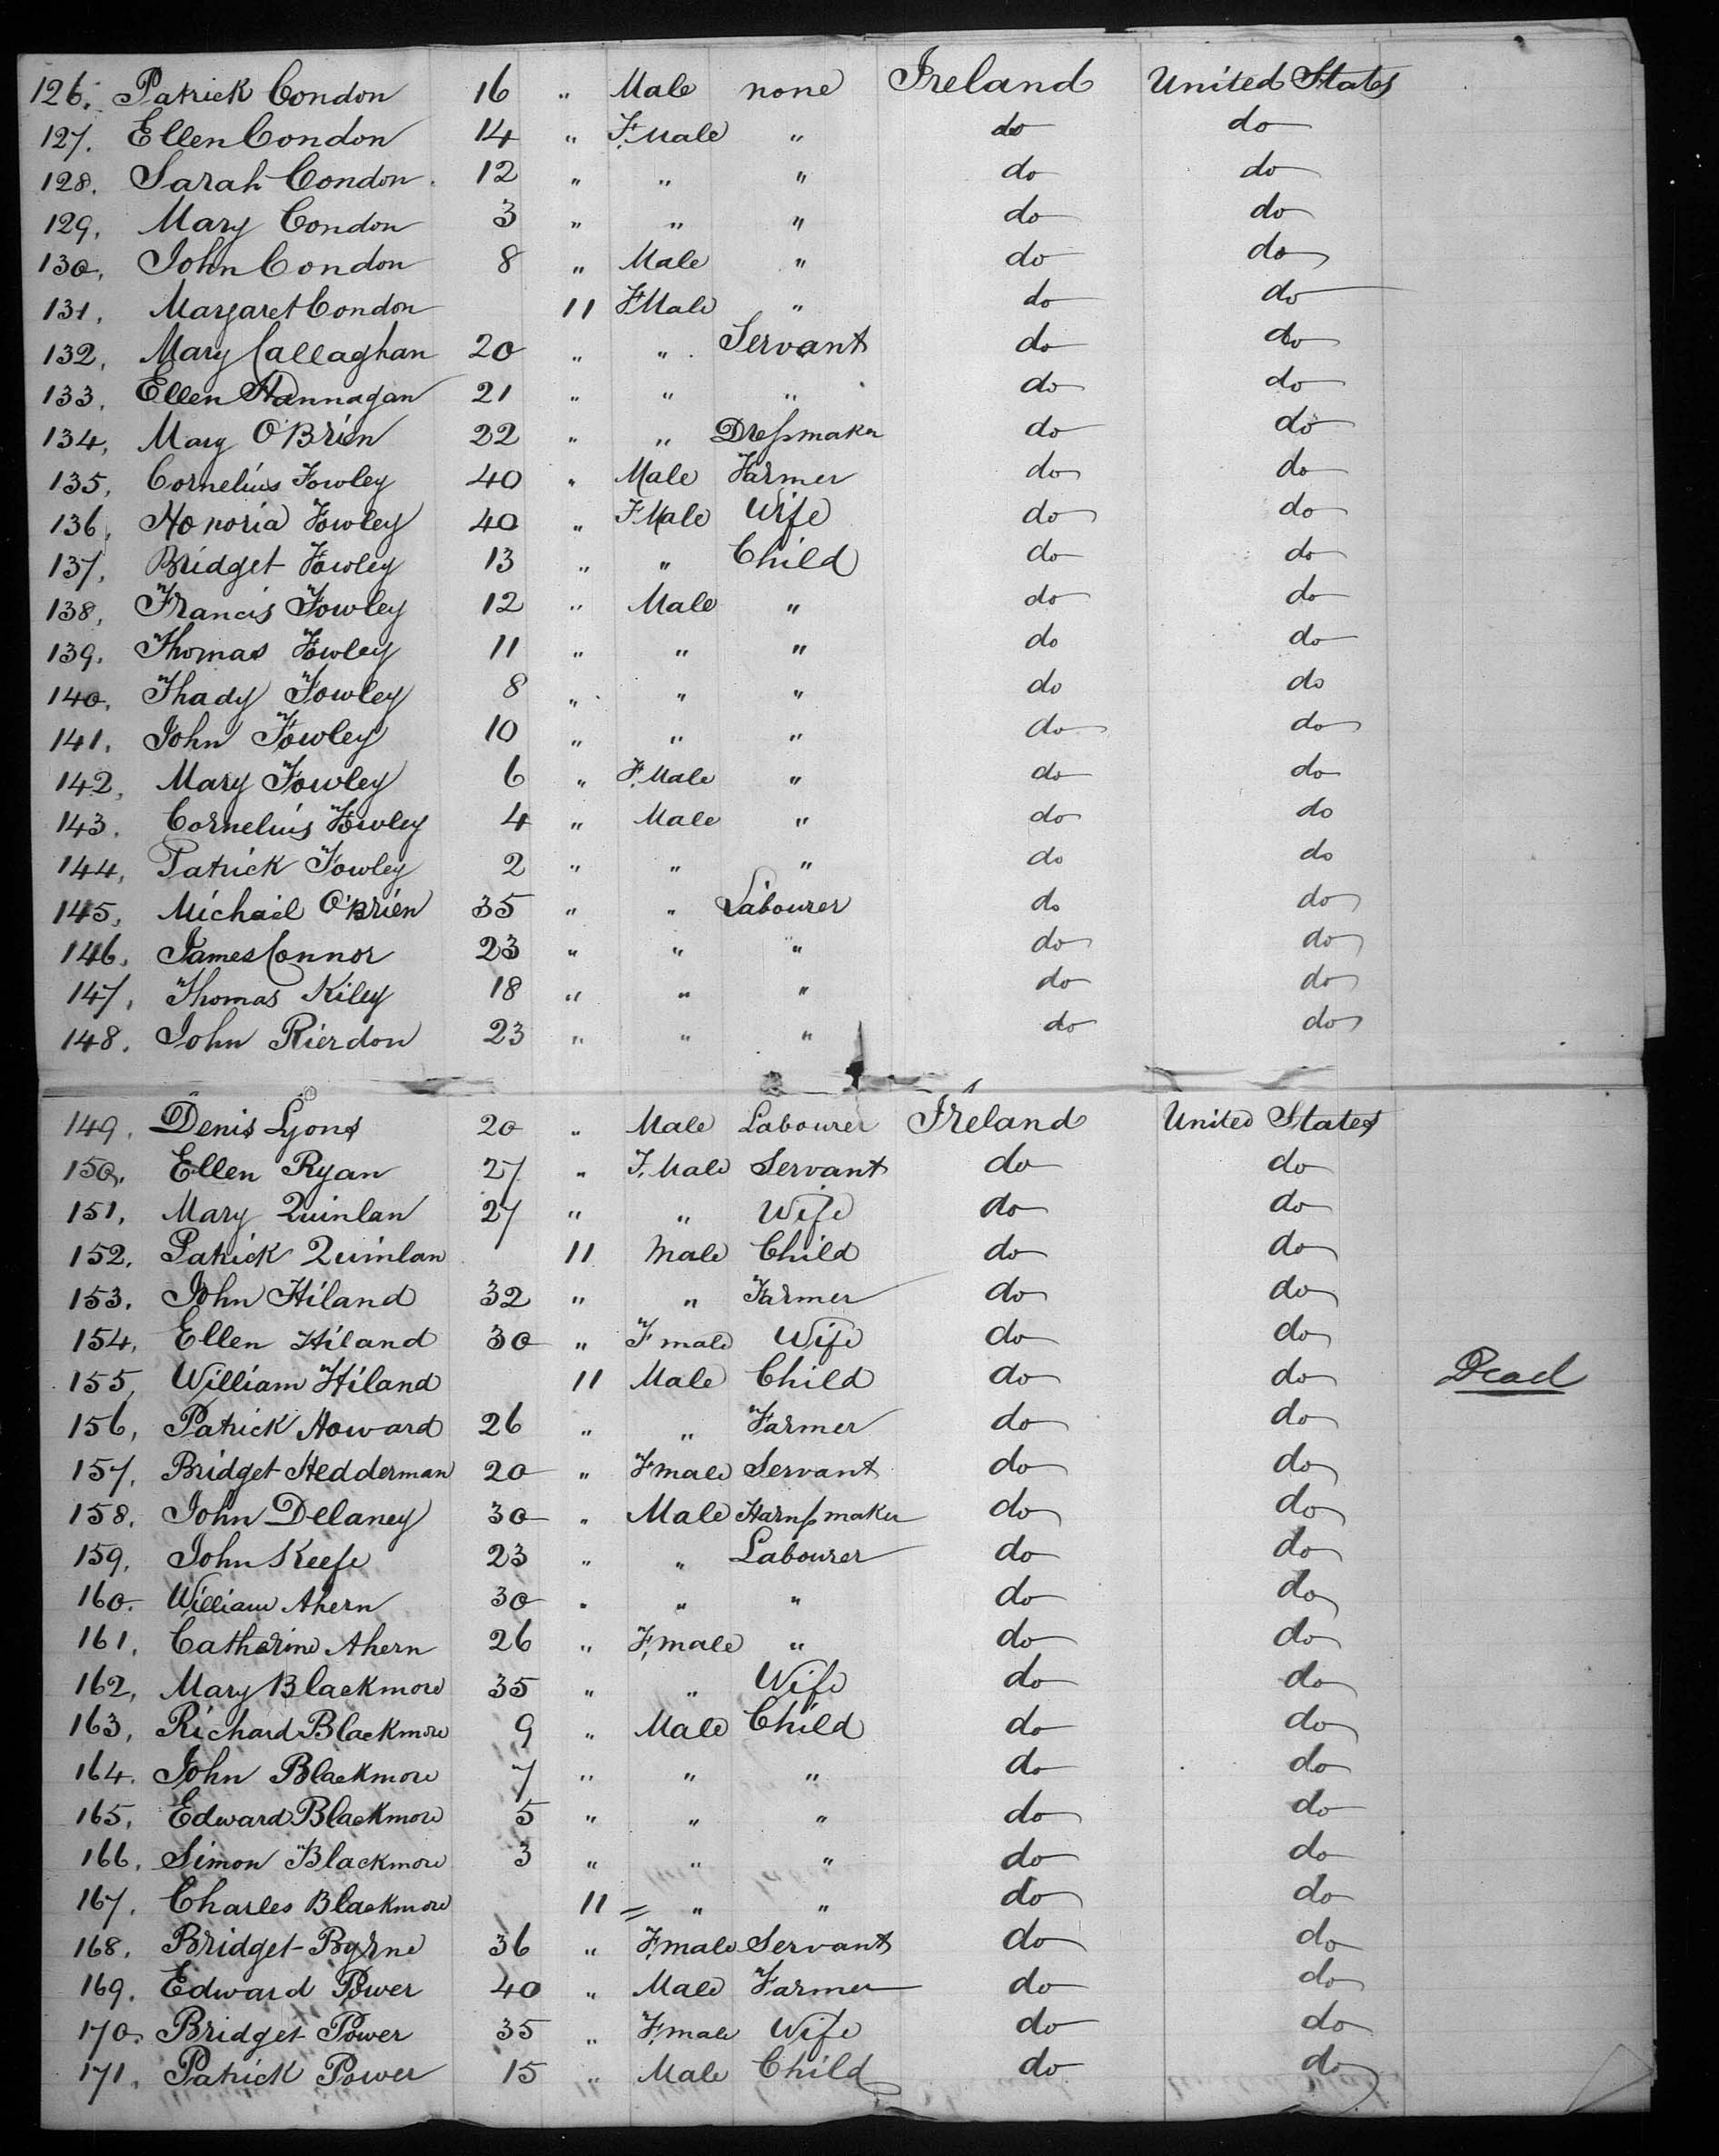 126. Patrick Condon 16 " Male none Ireland United States
127. Ellen Condon 14 " F. Male " do do
128. Sarah Condon 12 " " " do do
129. Mary Condon 3 " " " do do
130. John Condon 8 " Male " do do
131. Margaret Condon 11 F. Male " do do
132. Mary Callaghan 20 " " Servant do do
133. Ellen Hannagan 21 " " " do do
134. Mary O'Brien 22 " " Dressmaker do do
135. Cornelius Fowley 40 " Male Farmer do do
136. Honoria Fowley 40 " F. Male Wife do do
137. Bridget Fowley 13 " " Child do do
138. Francis Fowley 12 " Male " do do
139. Thomas Fowley 11 " " " do do
140. Thady Fowley 8 " " " do do
141. John Fowley 10 " " " do do
142. Mary Fowley 6 " F. Male " do do
143. Cornelius Fowley 4 " Male " do do
144. Patrick Fowley 2 " " " do do
145. Michael O'Brien 35 " " Labourer do do
146. James Connor 23 " " " do do
147. Thomas Kiley 18 " " " do do
148. John Rierdon 23 " " " do do
149. Denis Lyons 20 " Male Labourer Ireland United States
150. Ellen Ryan 27 " F. Male Servant do do
151. Mary Quinlan 27 " " Wife do do
152. Patrick Quinlan 11 Male Child do do
153. John Hiland 32 " " Farmer do do
154. Ellen Hiland 30 " F male Wife do do
155. William Hiland 11 Male Child do do Dead
156. Patrick Howard 26 " " Farmer do do
157. Bridget Hedderman 20 " F male Servant do do
158. John Delaney 30 " Male Harnssmaker do do
159. John Keefe 23 " " Labourer do do
160. William Ahern 30 " " " do do
161. Catherine Ahern 26 " F. male " do do
162. Mary Blackmore 35 " " Wife do do
163. Richard Blackmore 9 " Male Child do do
164. John Blackmore 7 " " " do do
165. Edward Blackmore 5 " " " do do
166. Simon Blackmore 3 " " " do do
167. Charles Blackmore 11 = " " do do
168. Bridget Byrne 36 " F. male Servant do do
169. Edward Power 40 " Male Farmer do do
170. Bridget Power 35 " F. male Wife do do
171. Patrick Power 15 " Male Child do do